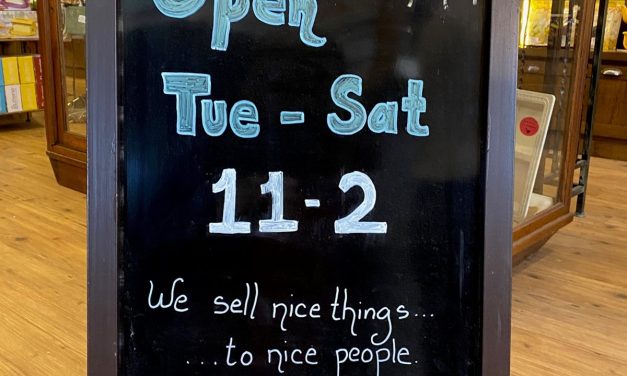 Open
Tue - Sat
11-2
We sell nice things...
...to nice people.